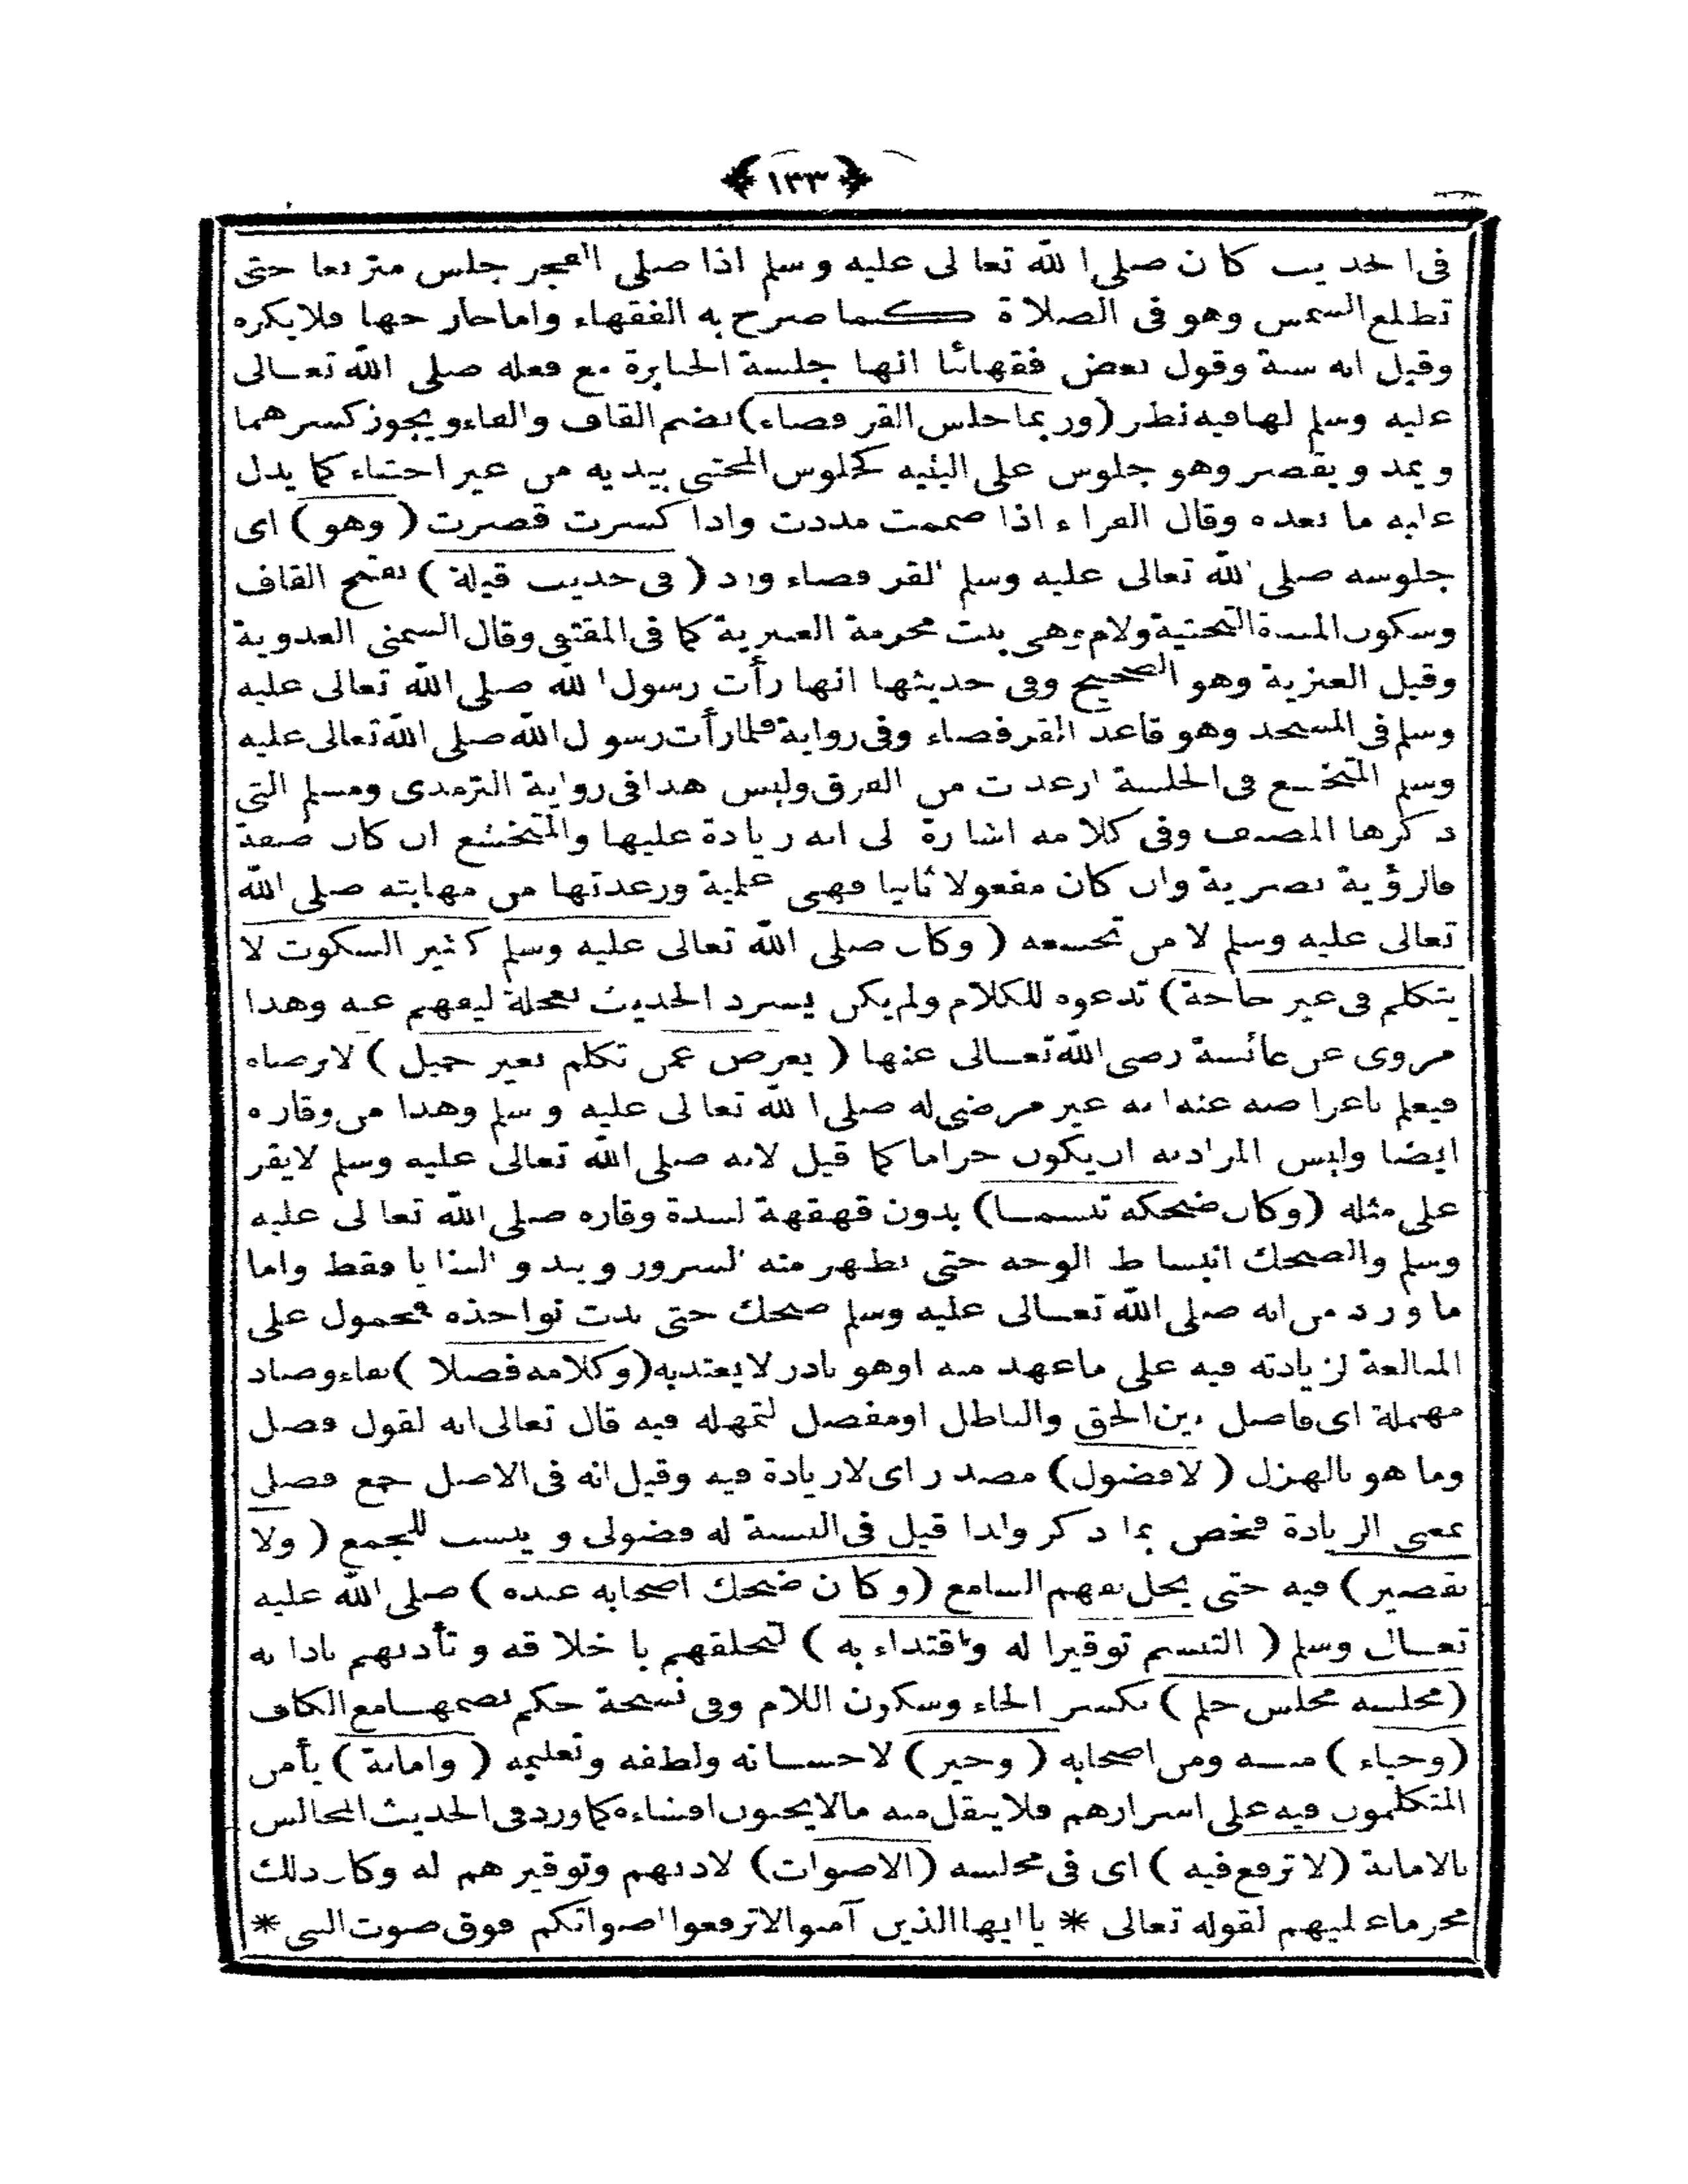 ﴿ ١٣٣ ﴾
فى الحديث كان صلى الله تعالى عليه وسلم اذا صلى الفجر جلس متربعا حتى
تطلع الشمس وهو فى الصلاة كما صرح به الفقهاء واما خارجها فلا يكره
وقيل انه سنة وقول بعض فقهائنا انها جلسة الجبابرة مع فعله صلى الله تعالى
عليه وسلم لها فيه نظر (وربما جلس القرفصاء) بضم القاف والفاء ويجوز كسرهما
ويمد ويقصر وهو جلوس على اليتيه كجلوس المحتبى بيديه من غير احتباء كما يدل
عليه ما بعده وقال الفراء اذا ضممت مددت واذا كسرت قصرت (وهو) اى
جلوسه صلى الله تعالى عليه وسلم القرفصاء ورد (فى حديث قيلة) بفتح القاف
وسكون المثناة التحتية ولام وهى بنت مخرمة العنبرية كما فى المقتفى وقال الشمنى العدوية
وقيل العنزية وهو الصحيح وفى حديثها انها رأت رسول الله صلى الله تعالى عليه
وسلم فى المسجد وهو قاعد القرفصاء وفى رواية فلما رأت رسول الله صلى الله تعالى عليه
وسلم المتخشع فى الجلسة ارعدت من الفرق وليس هذا فى رواية الترمذى ومسلم التى
ذكرها المصنف وفى كلامه اشارة الى انه زيادة عليها والمتخشع ان كان صفة
فالرؤية بصرية وان كان مفعولا ثانيا فهى علمية ورعدتها من مهابته صلى الله
تعالى عليه وسلم لا من تخشعه (وكان صلى الله تعالى عليه وسلم كثير السكوت لا
يتكلم فى غير حاجة) تدعوه للكلام ولم يكن يسرد الحديث بعجلة ليفهم عنه وهذا
مروى عن عائشة رضى الله تعالى عنها (يعرض عمن تكلم بغير جميل) لا يرضاه
فيعلم باعراضه عنه انه غير مرضى له صلى الله تعالى عليه وسلم وهذا من وقاره
ايضا وليس المراد به ان يكون حراما كما قيل لانه صلى الله تعالى عليه وسلم لا يقر
على مثله (وكان ضحكه تبسما) بدون قهقهة لشدة وقاره صلى الله تعالى عليه
وسلم والضحك انبساط الوجه حتى يظهر منه السرور ويبدو الثنايا فقط واما
ما ورد من انه صلى الله تعالى عليه وسلم ضحك حتى بدت نواجذه فمحمول على
المبالغة لزيادته فيه على ما عهد منه او هو نادر لا يعتد به (وكلامه فصلا) بفاء وصاد
مهملة اى فاصل بين الحق والباطل او مفصل لتمهله فيه قال تعالى انه لقول فصل
وما هو بالهزل (لا فضول) مصدر اى لا زيادة فيه وقيل انه فى الاصل جمع فضل
بمعنى الزيادة فخص بما ذكر ولذا قيل فى النسبة له فضولى وينسب للجمع (ولا
تقصير) فيه حتى يخل بفهم السامع (وكان ضحك اصحابه عنده) صلى الله عليه
تعالى وسلم (التبسم توقيرا له واقتداء به) لتخلقهم باخلاقه وتأدبهم بادابه
(مجلسه مجلس حلم) بكسر الحاء وسكون اللام وفى نسخة حكم بضمها مع الكاف
(وحياء) منه ومن اصحابه (وخير) لاحسانه ولطفه وتعليمه (وامانة) يأمن
المتكلمون فيه على اسرارهم فلا ينقل منه مالا يحبون افشاءه كما ورد فى الحديث المجالس
بالامانة (لا ترفع فيه) اى فى مجلسه (الاصوات) لادبهم وتوقيرهم له وكان ذلك
محرما عليهم لقوله تعالى * يا ايها الذين آمنوا لا ترفعوا اصواتكم فوق صوت النبى *